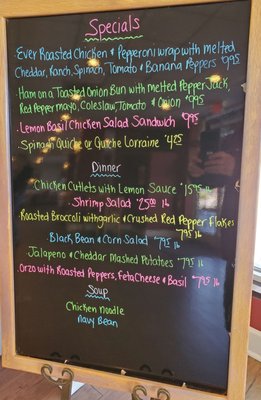 Specials
Ever Roasted Chicken & Pepperoni wrap with melted
Cheddar, Ranch, Spinach, Tomato & Banana Peppers $9.95
Ham on a Toasted Onion Bun with melted Pepper Jack,
Red Pepper mayo, Coleslaw, Tomato & Onion $9.95
Lemon Basil Chicken Salad Sandwich $9.95
Spinach Quiche or Quiche Lorraine $4.25
Dinner
Chicken Cutlets with Lemon Sauce lb
Shrimp Salad $25.00 lb
Roasted Broccoli with garlic & Crushed Red Pepper Flakes
Black Bean & Corn Salad $7.95 lb
Jalapeno & Cheddar Mashed Potatoes $7.95 lb
Orzo with Roasted Peppers, Feta Cheese & Basil $7.95 lb
Soup
Chicken noodle
Navy Bean